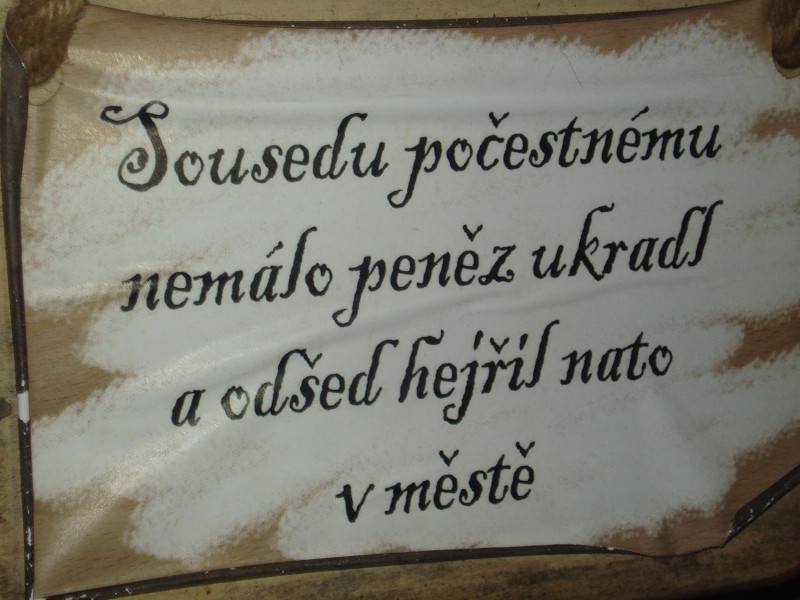 Sousedu počestnému
nemálo peněz ukradl
a odšed hejřil nato
v městě